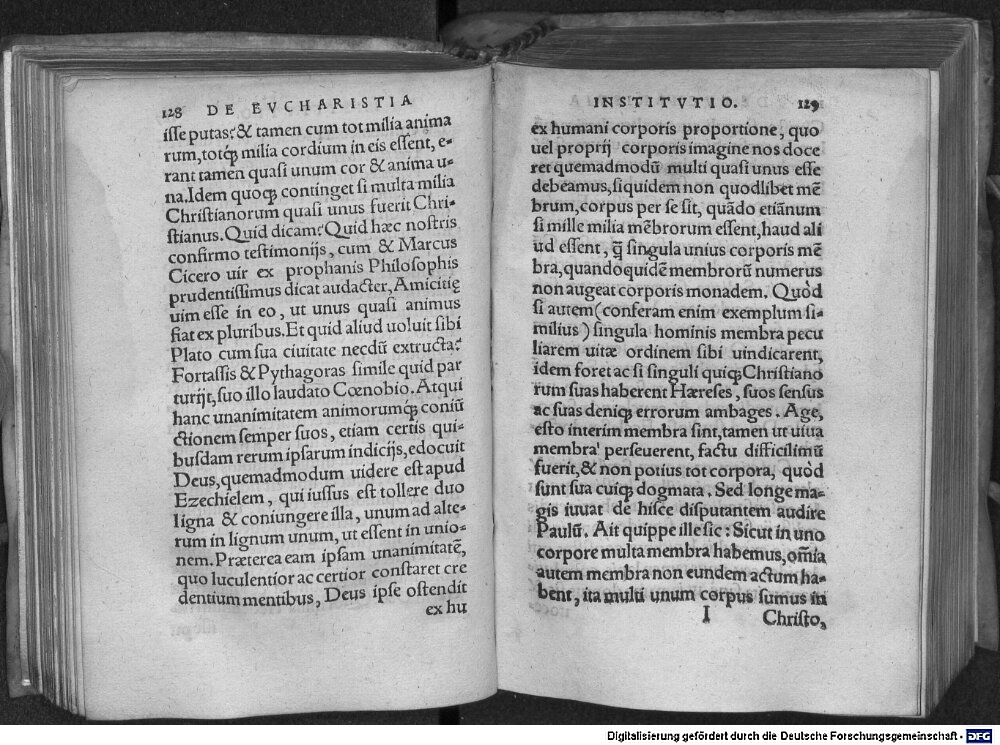 128 DE EVCHARISTIA
isse putas?& tamen cum tot milia anima
rum,totq́; milia cordium in eis essent, e-
rant tamen quasi unum cor & anima u-
na.Idem quoq; continget si multa milia
Christianorum quasi unus fuerit Chri-
stianus. Quid dicam? Quid hæc nostris
confirmo testimonijs, cum & Marcus
Cicero uir ex prophanis Philosophis
prudentissimus dicat audacter, Amicitię
uim esse in eo, ut unus quasi animus
fiat ex pluribus.Et quid aliud uoluit sibi
Plato cum sua ciuitate necdū extructa?
Fortassis & Pythagoras simile quid par
turijt, suo illo laudato Cœnobio. Atqui
hanc unanimitatem animorumq́; coniū
ctionem semper suos, etiam certis qui-
busdam rerum ipsarum indicijs, edocuit
Deus, quemadmodum uidere est apud
Ezechielem, qui iussus est tollere duo
ligna & coniungere illa, unum ad alte-
rum in lignum unum, ut essent in unio-
nem. Præterea eam ipsam unanimitatē,
quo luculentior ac certior constaret cre
dentium mentibus, Deus ipse ostendit
ex hu
INSTITVTIO. 129
ex humani corporis proportione, quo
uel proprij corporis imagine nos doce
ret quemadmodū multi quasi unus esse
debeamus, siquidem non quodlibet mē
brum, corpus per se sit, quādo etiānum
si mille milia mēbrorum essent, haud ali
ud essent, q̄ singula unius corporis mē
bra, quandoquidē membrorū numerus
non augeat corporis monadem. Quòd
si autem (conferam enim exemplum si-
milius) singula hominis membra pecu
liarem uitæ ordinem sibi uindicarent,
idem foret ac si singuli quiq; Christiano
rum suas haberent Hæreses, suos sensus
ac suas deniq; errorum ambages. Age,
esto interim membra sint, tamen ut uiua
membra perseuerent, factu difficilimū
fuerit, & non potius tot corpora, quòd
sunt sua cuiq; dogmata. Sed longe ma-
gis iuuat de hisce disputantem audire
Paulū. Ait quippe ille sic: Sicut in uno
corpore multa membra habemus, om̄ia
autem membra non eundem actum ha-
bent, ita multi unum corpus sumus in
I Christo,
Digitalisierung gefördert durch die Deutsche Forschungsgemeinschaft - DFG